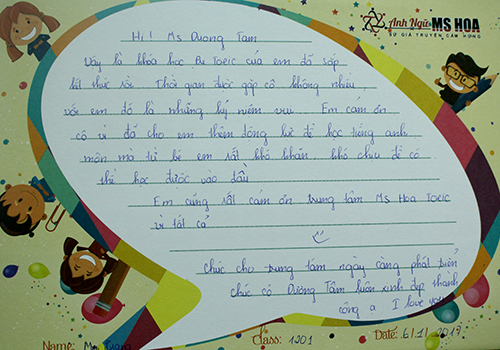 Anh Ngữ MS HOA
SỨ GIẢ TRUYỀN CẢM HỨNG
Hi! Ms Duong Tâm
Vậy là khóa học Pre Toeic của em đã sắp
kết thúc rồi. Thời gian được gặp cô không nhiều,
với em đó là những kỷ niệm vui. Em cảm ơn
cô vì đã cho em thêm động lực để học tiếng anh
môn mà từ bé em rất khó khăn, khó chịu để có
thể học được vào đầu
Em cũng rất cảm ơn trung tâm Ms Hoa Toeic
vì tất cả
Chúc cho trung tâm ngày càng phát triển
chúc cô Dương Tâm luôn xinh đẹp thành
công ạ I love you
Name: Class: 1201 Date: 6/1/2017